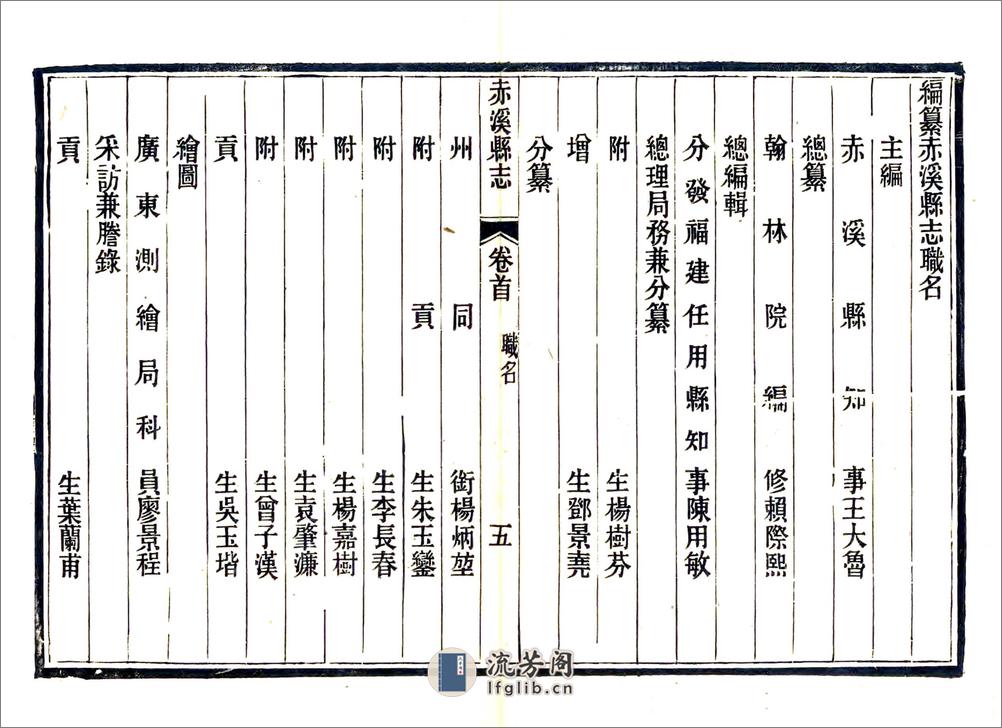 編纂赤溪縣志職名
主編
赤溪縣知事王大魯
總纂
翰林院編修賴際熙
總編輯
分發福建任用縣知事陳用敏
總理局務兼分纂
附生楊樹芬
增生鄧景堯
分纂
赤溪縣志 卷首 職名 五
州同銜楊炳堃
附貢生朱玉鑾
附生李長春
附生楊嘉樹
附生袁肇濂
附生曾子漢
貢生吳玉堦
繪圖
廣東測繪局科員廖景程
采訪兼謄錄
貢生葉蘭甫
流芳阁
lfglib.cn